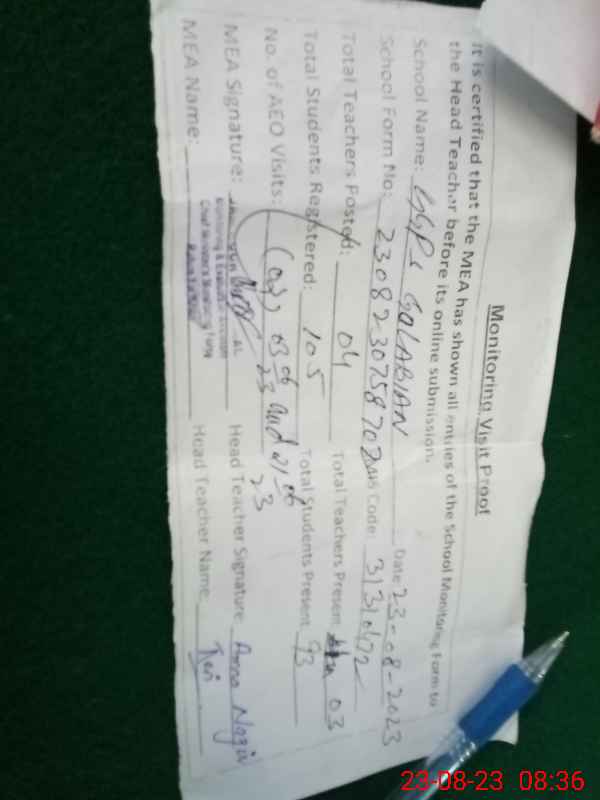 Monitoring Visit Proof
It is certified that the MEA has shown all entries of the School Monitoring Form to
the Head Teacher before its online submission.
School Name: GGPS GOLABIAN Date 23-08-2023
School Form No: Code: 31310472
Total Teachers Posted: 04 Total Teachers Present 03
Total Students Registered: 105 Total Students Present 93
No. of AEO Visits: (02), 03 06 23 and 21 06 23
MEA Signature: Head Teacher Signature
MEA Name: Head Teacher Name
Monitoring & Evaluation
23-08-23 08:36